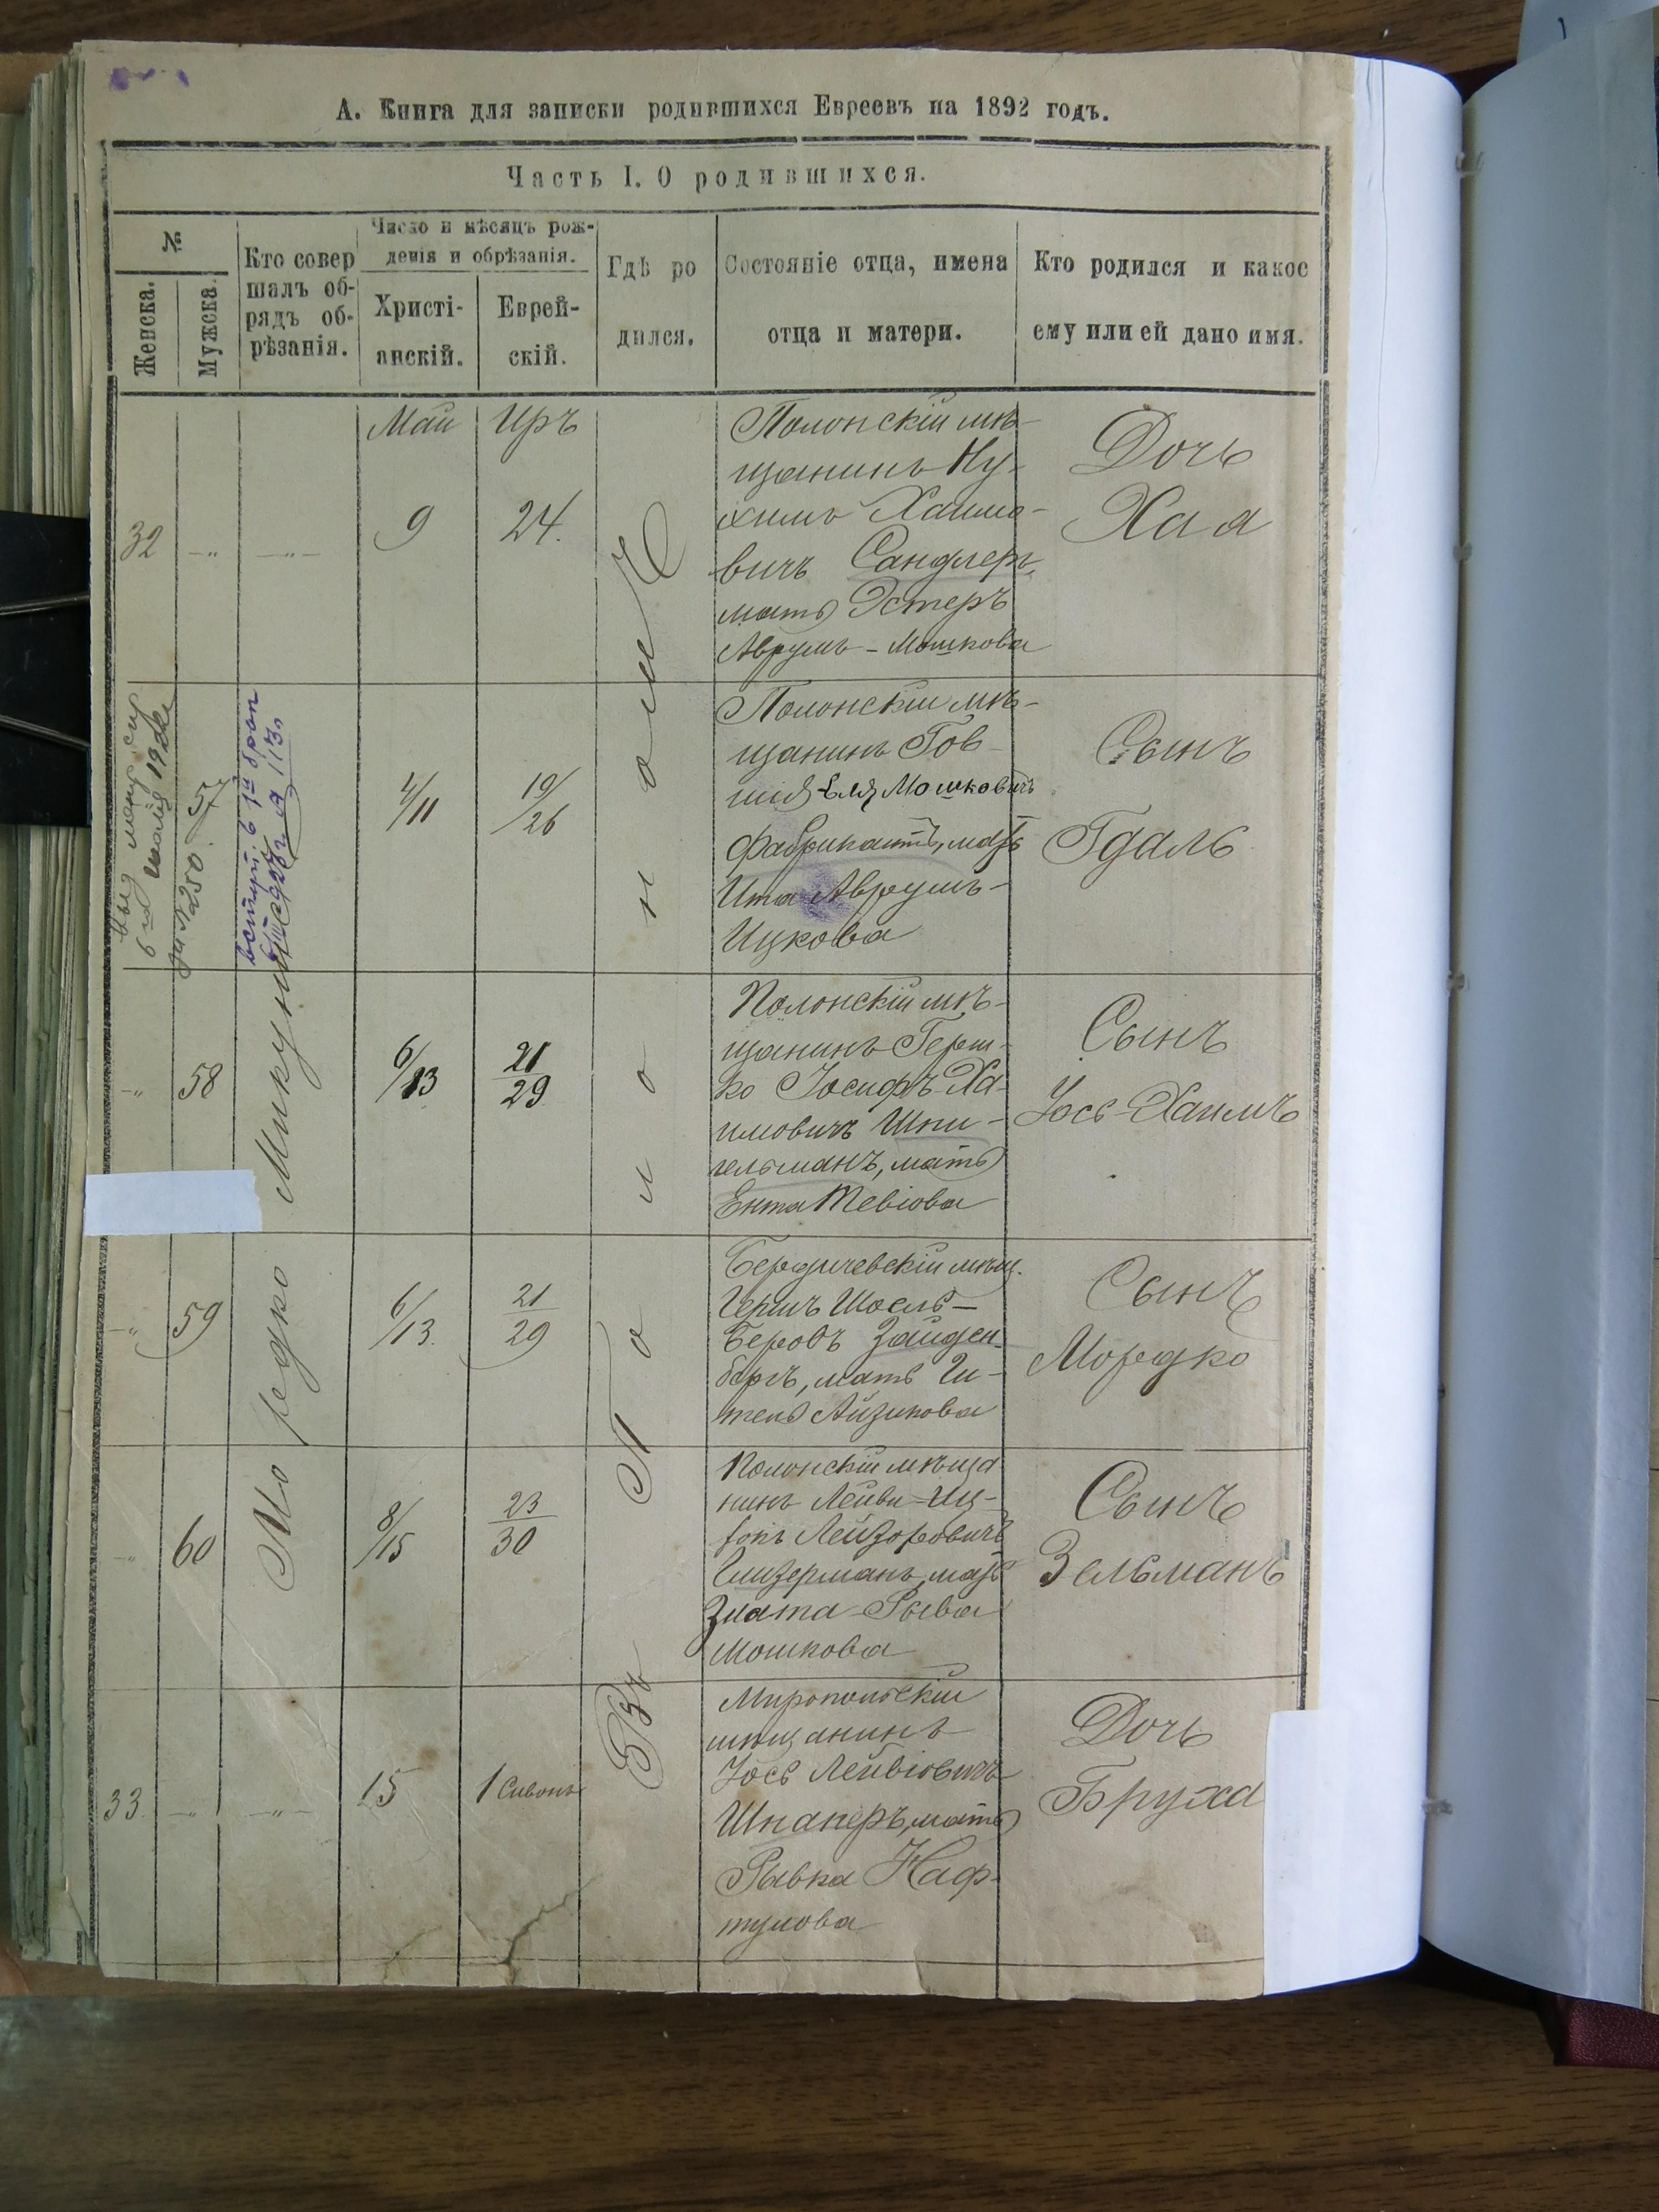 А. Книга для записки родившихся Евреевъ на 1892 годъ.
Часть I. О родившихся.
№
Женска.
Мужска.
Кто совер
шалъ об-
рядъ об-
рѣзанія.
Число и мѣсяцъ рож-
денія и обрѣзанія.
Христі-
анскій.
Еврей-
скій.
Гдѣ ро
дился.
Состояніе отца, имена
отца и матери.
Кто родился и какое
ему или ей дано имя.
Въ Полонномъ
Мордко Микулин
32
Май
9
Иръ
24.
Полонскій мѣ-
щанинъ Ну-
химъ Хаимо-
вичъ Сандлеръ,
мать Эстеръ
Аврумъ-Мошкова
Дочь
Хая
57
за № 250
4/11
19/26
Полонскій мѣ-
щанинъ Гов-
шія-Еля Мошковичъ
Фабрикантъ, мать
Ита Аврумъ-
Ицкова
Сынъ
Гдаль
58
6/13
21/29
Полонскій мѣ-
щанинъ Герш-
ко Іосифъ Ха-
имовичъ Шпи-
гельманъ, мать
Ента Тевіова
Сынъ
Іось-Хаимъ
59
6/13.
21/29
Бердичевскій мѣщ.
Гершъ Шоель-
Беровъ Зайден-
бергъ, мать Ги-
теля Айзикова
Сынъ
Мордко
60
8/15
23/30
Полонскій мѣща
нинъ Лейви-Иц-
Лейзоровичъ
мать
Злата-Рывка
Мошкова
Сынъ
Зельманъ
33.
15
1 Сивонъ
Миропольскій
мѣщанинъ
Іось Лейвіовичъ
Шнаперъ, мать
Рывка Наф-
тулова
Дочь
Бруха